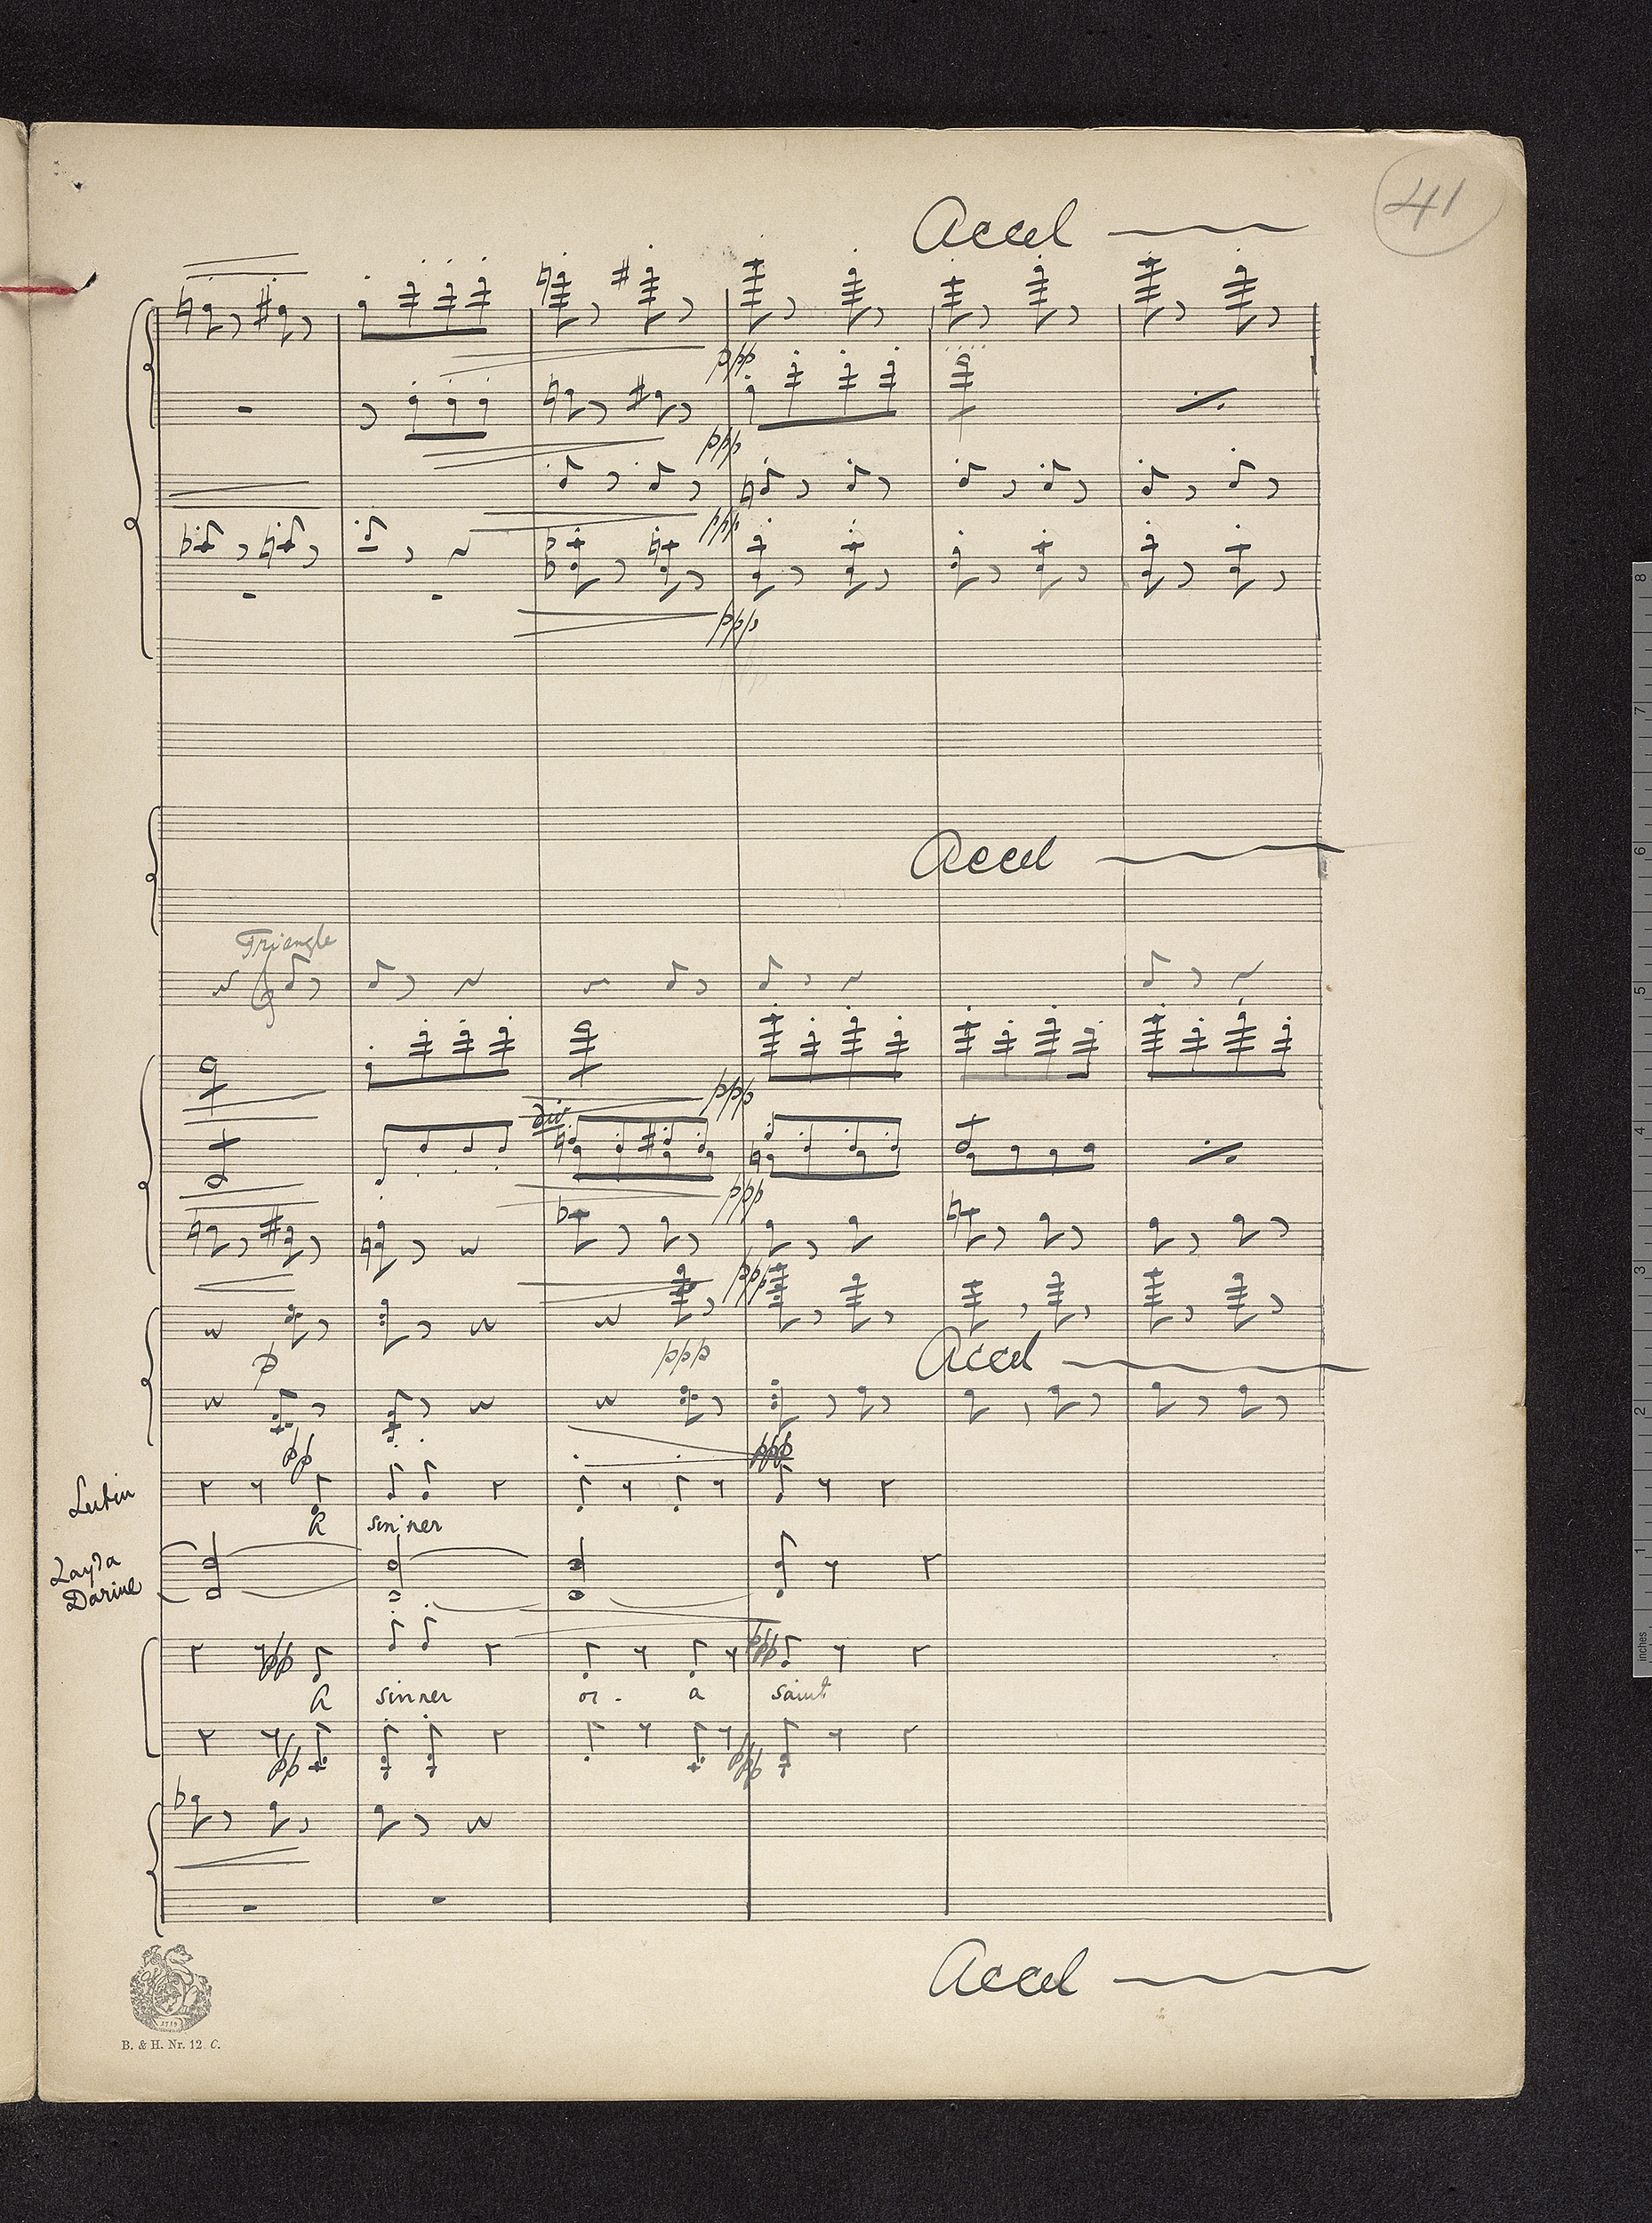 41
Accel
ppp
ppp
ppp
ppp
Accel
Triangle
ppp
div
ppp
ppp
p
ppp
Accel
pp
ppp
Lubin
A sinner
Layra
Darine
pp ppp
A sinner or a saint
pp ppp
Accel
1719
B. & H. Nr. 12. C.
8
7
6
5
4
3
2
1
inches